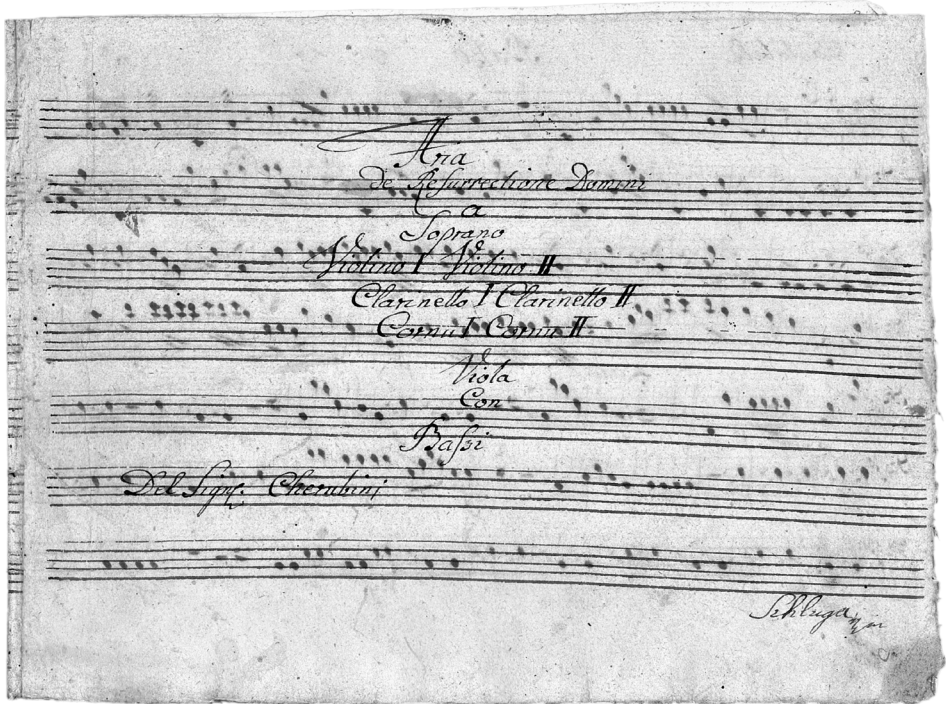 Aria
de Resurrectione Domini
a
Soprano
Violino I Violino II
Clarinetto I Clarinetto II
Cornu I Cornu II
Viola
Con
Bassi
Del Sigre. Cherubini
Schluga